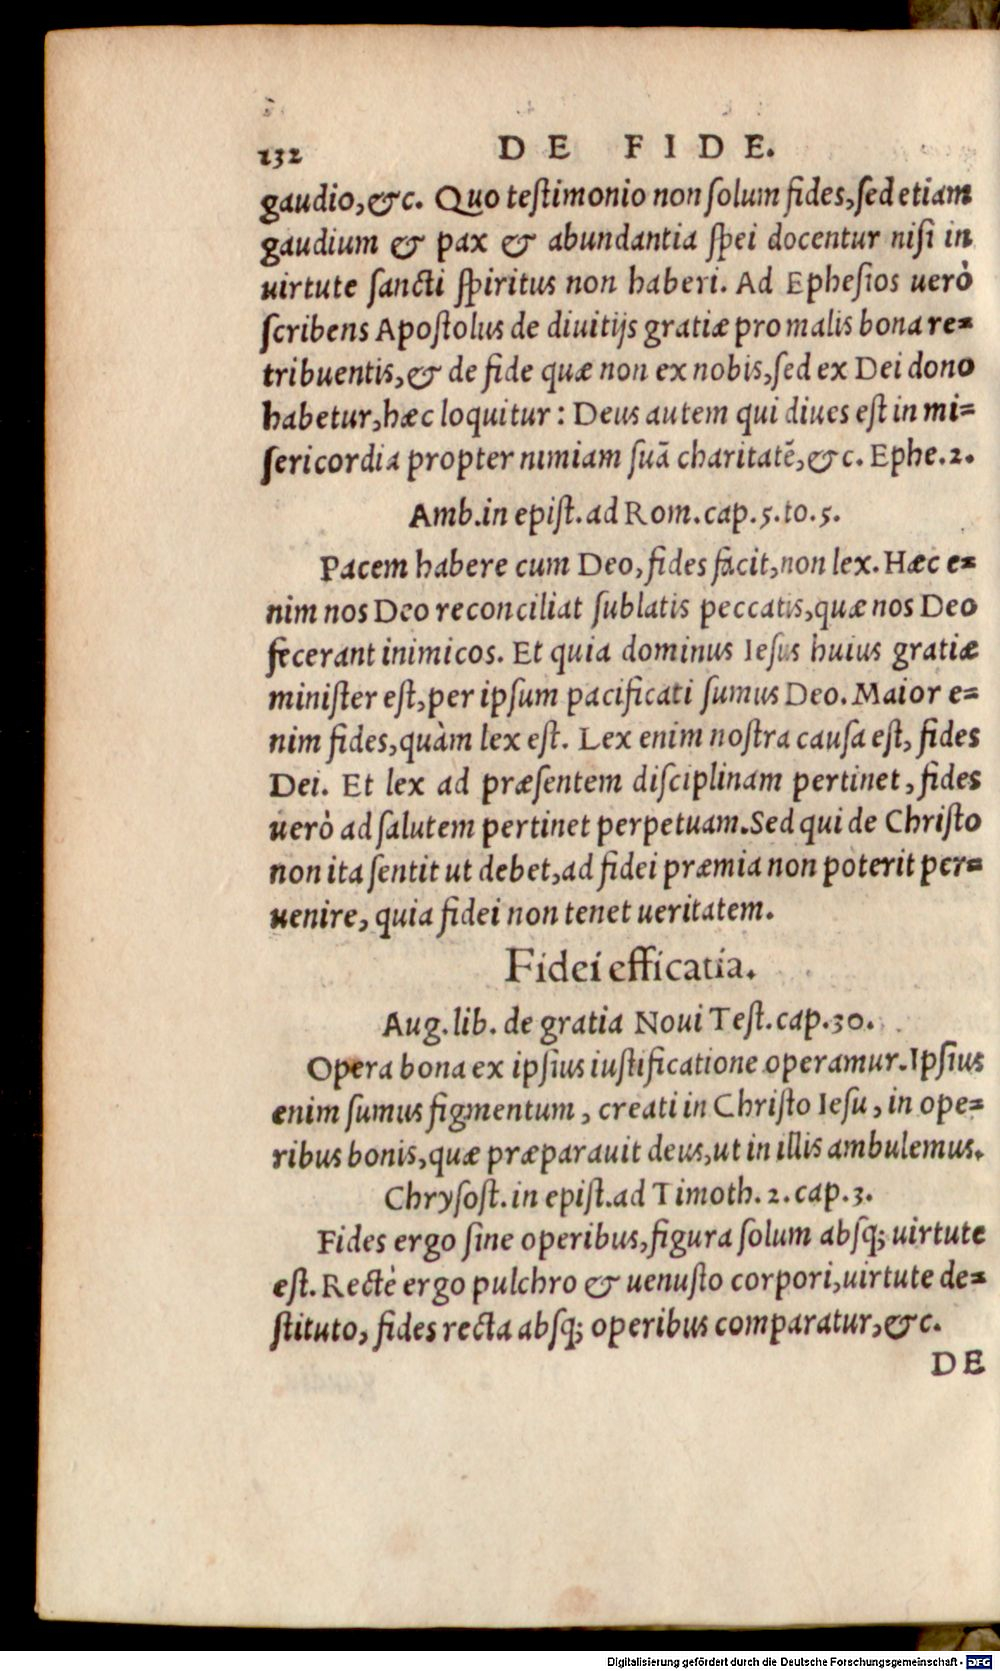 132 DE FIDE.
gaudio,&c. Quo teſtimonio non ſolum fides,ſed etiam
gaudium & pax & abundantia ſpei docentur niſi in
uirtute ſancti ſpiritus non haberi. Ad Epheſios uerò
ſcribens Apoſtolus de diuitijs gratiæ pro malis bona re=
tribuentis,& de fide quæ non ex nobis,ſed ex Dei dono
habetur,hæc loquitur : Deus autem qui diues eſt in mi=
ſericordia propter nimiam ſuā charitatē,&c. Ephe.2.
Amb.in epiſt.ad Rom.cap.5.to.5.
Pacem habere cum Deo,fides facit,non lex. Hæc e=
nim nos Deo reconciliat ſublatis peccatis,quæ nos Deo
fecerant inimicos. Et quia dominus Ieſus huius gratiæ
miniſter eſt,per ipſum pacificati ſumus Deo. Maior e=
nim fides,quàm lex eſt. Lex enim noſtra cauſa eſt, fides
Dei. Et lex ad præſentem diſciplinam pertinet, fides
uerò ad ſalutem pertinet perpetuam.Sed qui de Chriſto
non ita ſentit ut debet,ad fidei præmia non poterit per=
uenire, quia fidei non tenet ueritatem.
Fidei efficatia.
Aug.lib. de gratia Noui Teſt.cap.30.
Opera bona ex ipſius iuſtificatione operamur.Ipſius
enim ſumus figmentum, creati in Chriſto Ieſu, in ope=
ribus bonis,quæ præparauit deus,ut in illis ambulemus.
Chryſoſt.in epiſt.ad Timoth.2.cap.3.
Fides ergo ſine operibus,figura ſolum abſq; uirtute
eſt. Rectè ergo pulchro & uenuſto corpori,uirtute de=
ſtituto, fides recta abſq; operibus comparatur,&c.
DE
Digitalisierung gefördert durch die Deutsche Forschungsgemeinschaft - DFG